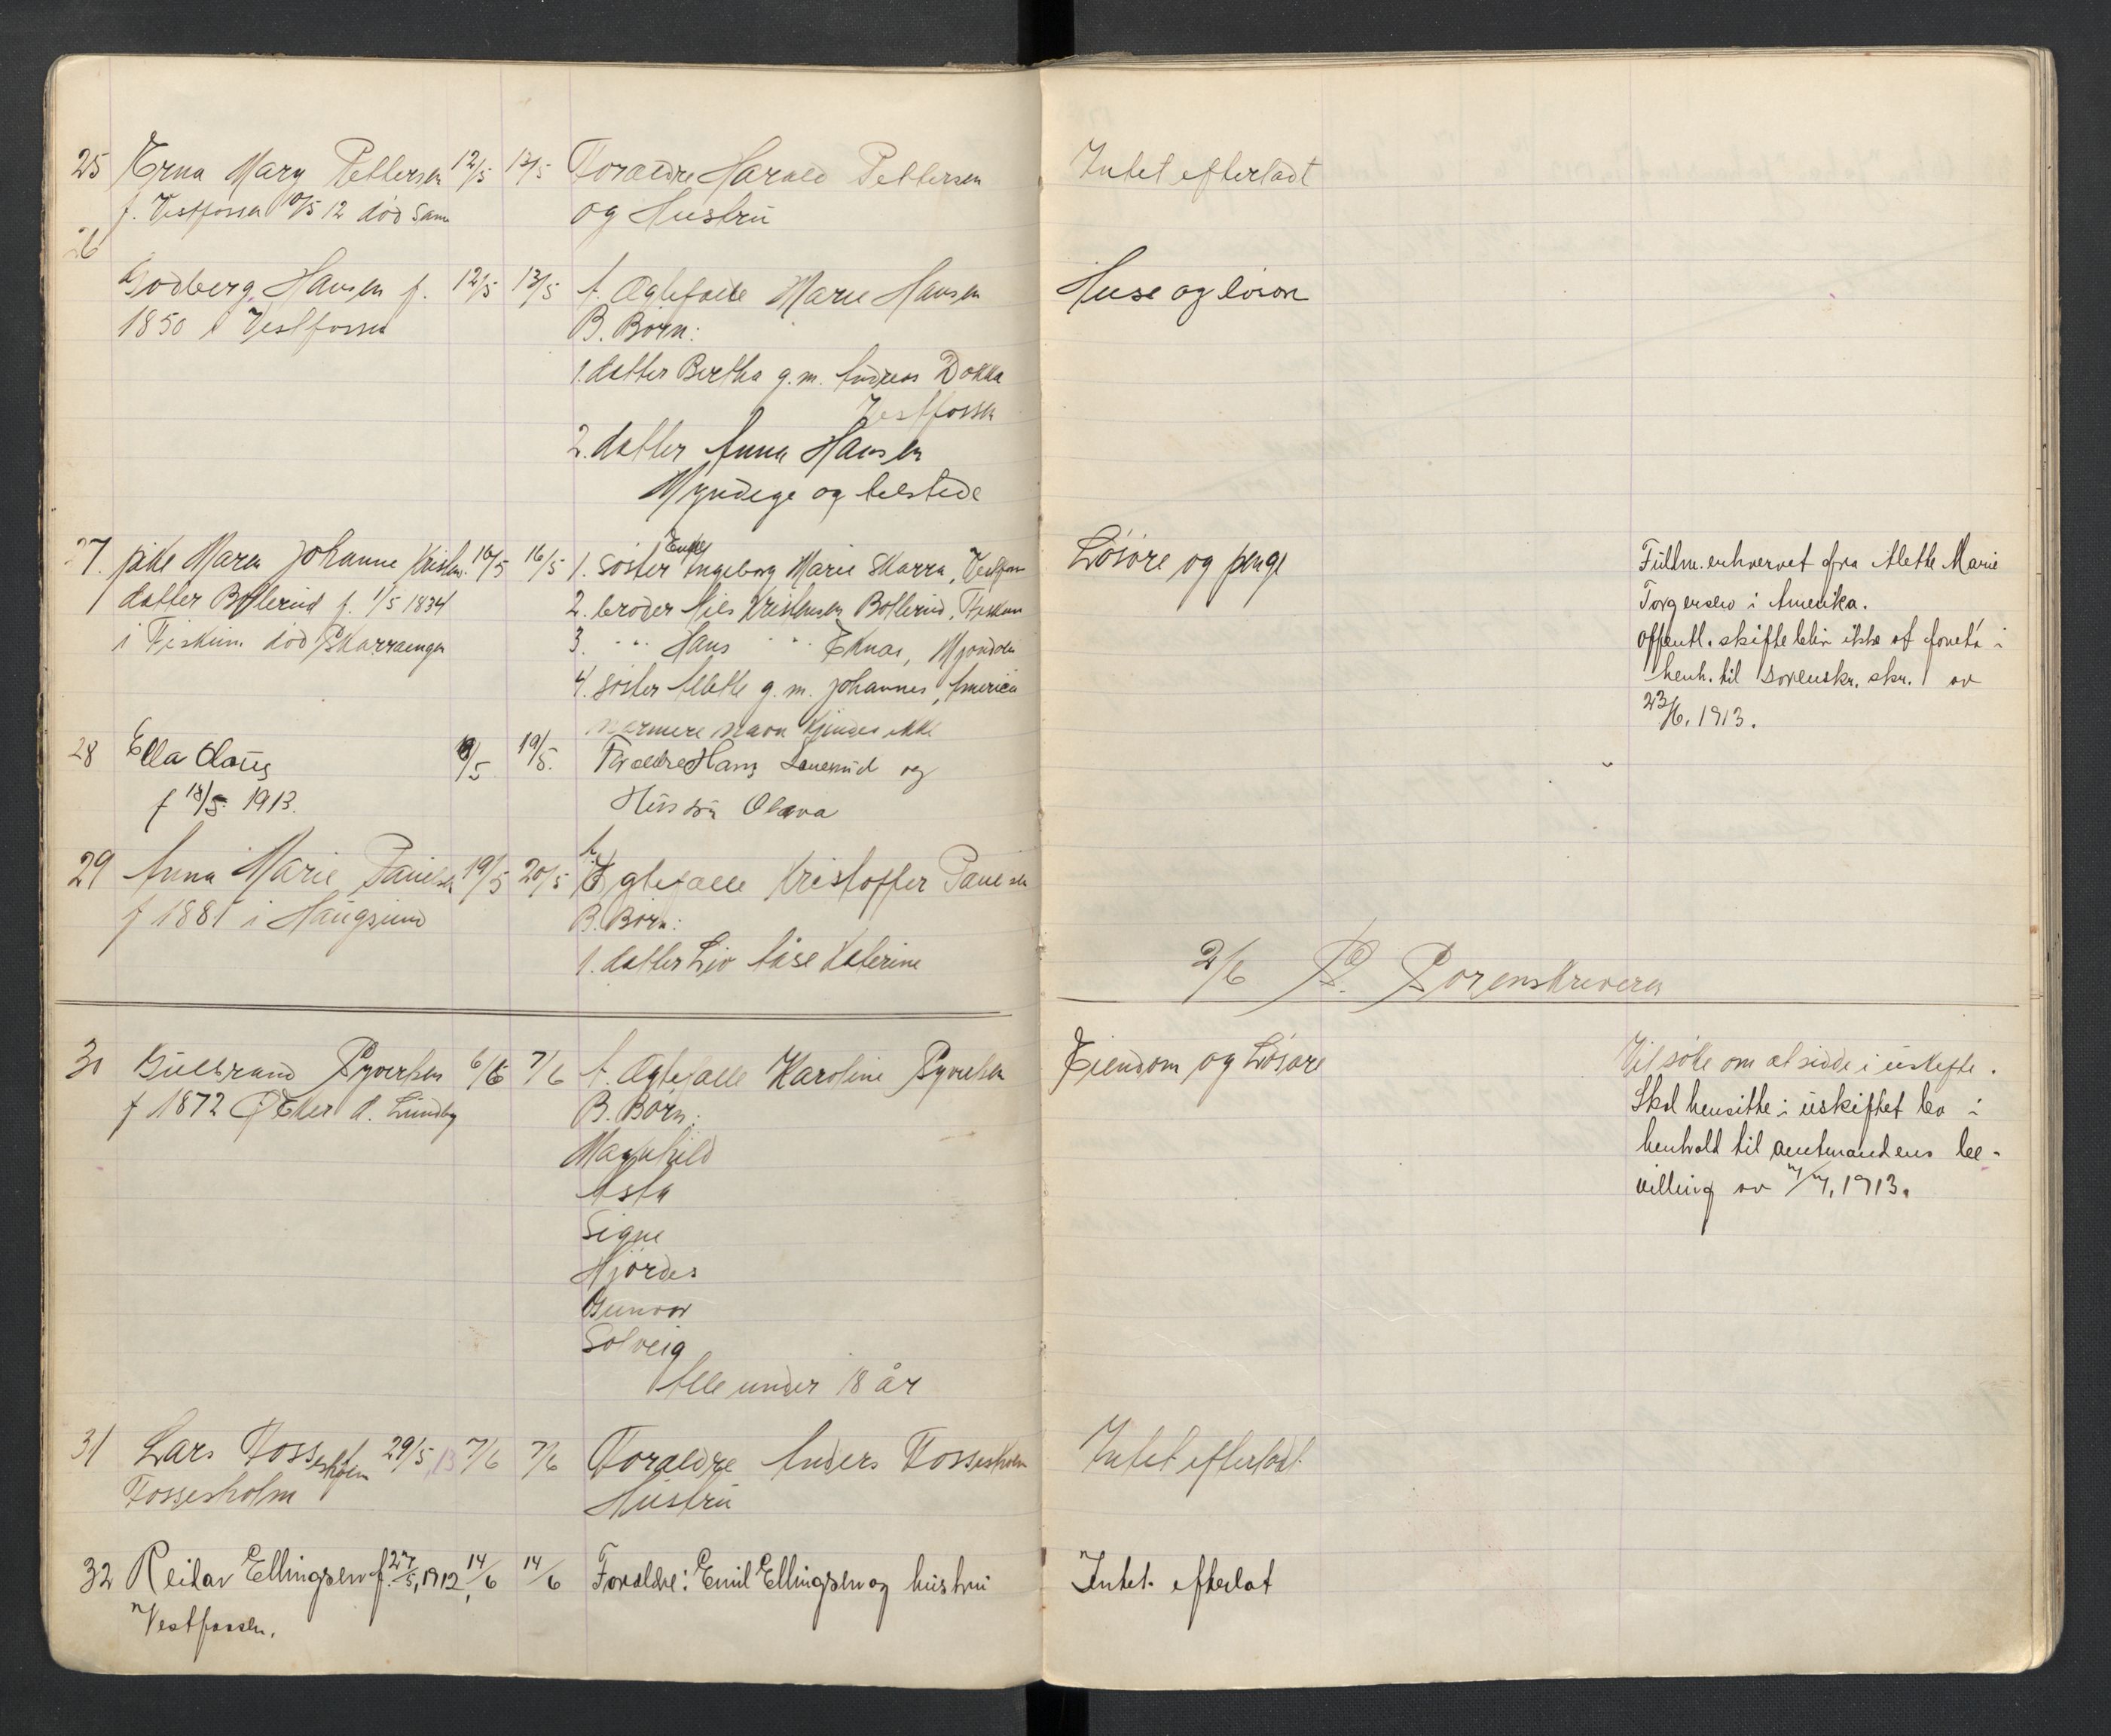 25 Erna Mary Pettersen 12/5 13/5 Foraldre Harald Pettersen Intet efterladt
f. Vestfossen 10/5 12 død Sam og Hustru
26
Godberg Hansen f. 12/5 13/5 A. Ægtefælle Marie Hansen Huse og løsøre
1850 i Vestfossen B. Børn:
1. datter Bertha g.m. Andreas Dokka
Vestfossen
2. datter Anna Hansen
Myndige og tilstede
27. pike Maren Johanne Kristens. 16/5 16/5 1. søster Enke Ingeborg Marie Skarra, Vestfos Løsøre og penge Fuldm. erhvervet fra Alethe Marie
datter Bollerud f. 1/5 1834 2. broder Nils Kristensen Bollerud, Fiskum Torgersen i Amerika.
i Fiskum død Skarraengen 3. " Hans " Eknas, Mjøndalen Offentl. skifte blir ikke at foreta i
4. søster Alethe g.m. Johannes, America henh. til sorenskr. skr. av
nærmere navn kjendes ikke 23/6, 1913.
28 Ella Olaug 18/5 19/5. Foraldre Hans Lauerud og
f 18/5 1913. Hustru Olava
29 Anna Marie Paulsen 19/5 20/5 A. Egtefalle Kristoffer Paulsen
f 1881 i Haugsund B. Børn:
1. datter Liv Aase Katerine
2/6 S. Sorenskriveren
30 Gulbrand Syvertsen 6/6 7/6 A. Ægtefalle Karoline Syvertsen Eiendom og Løsøre Vil søke om at sidde i uskifte.
f 1872 Ø Eker d. Lundby B. Børn: Skal hensitte i uskiftet bo i
Magnhild henhold til amtmandens be-
Asta villing av 7/7, 1913.
Signe
Hjørdes
Gunvor
Solveig
Alle under 18 år
31 Lars Fossesholm 29/5, 13 7/6 7/6 Foraldre Anders Fossesholm Intet efterladt
Fossesholm Hustru
32 Reidar Ellingsen f. 27/5, 1912, 14/6 14/6 Foraldre: Emil Ellingsen og hustru Intet efterlat
Vestfossen.